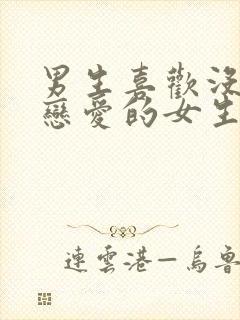 男生喜歡沒
戀愛的女生
連雲港—烏魯